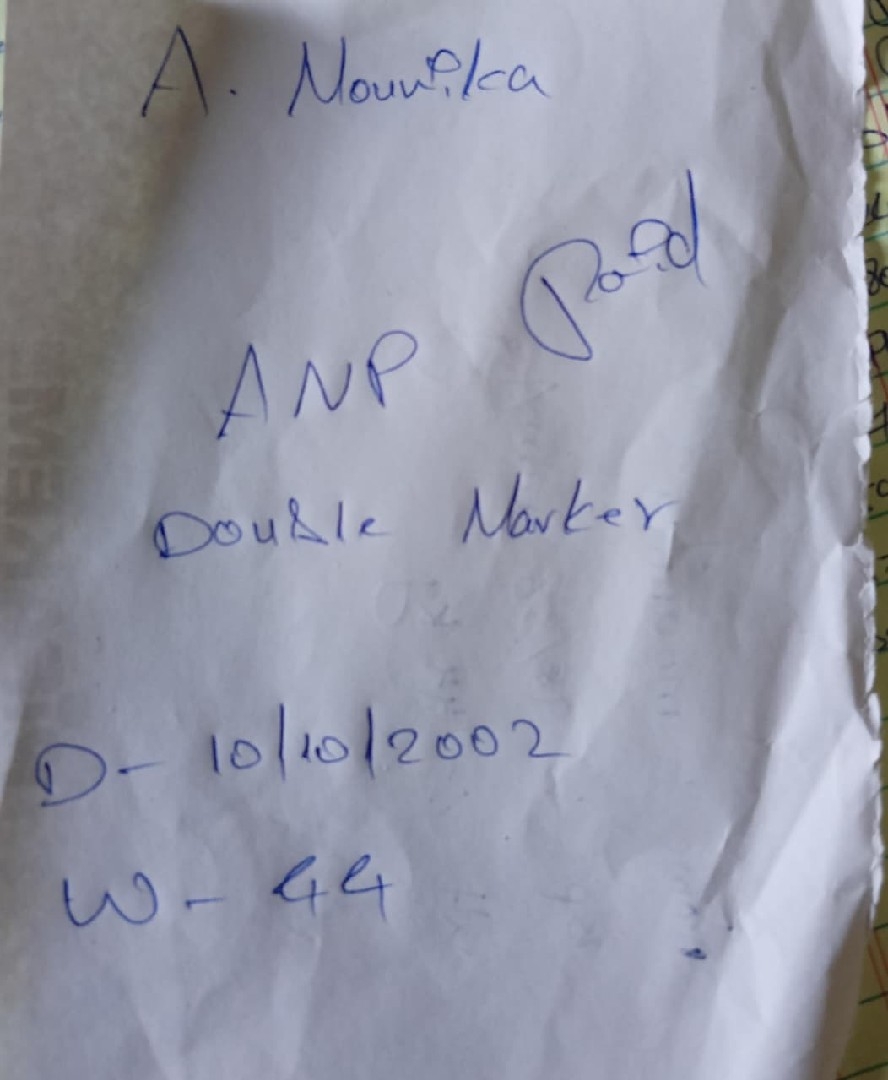 A. Mounika
Paid
ANP
Double Marker
D- 10/10/2002
W- 44